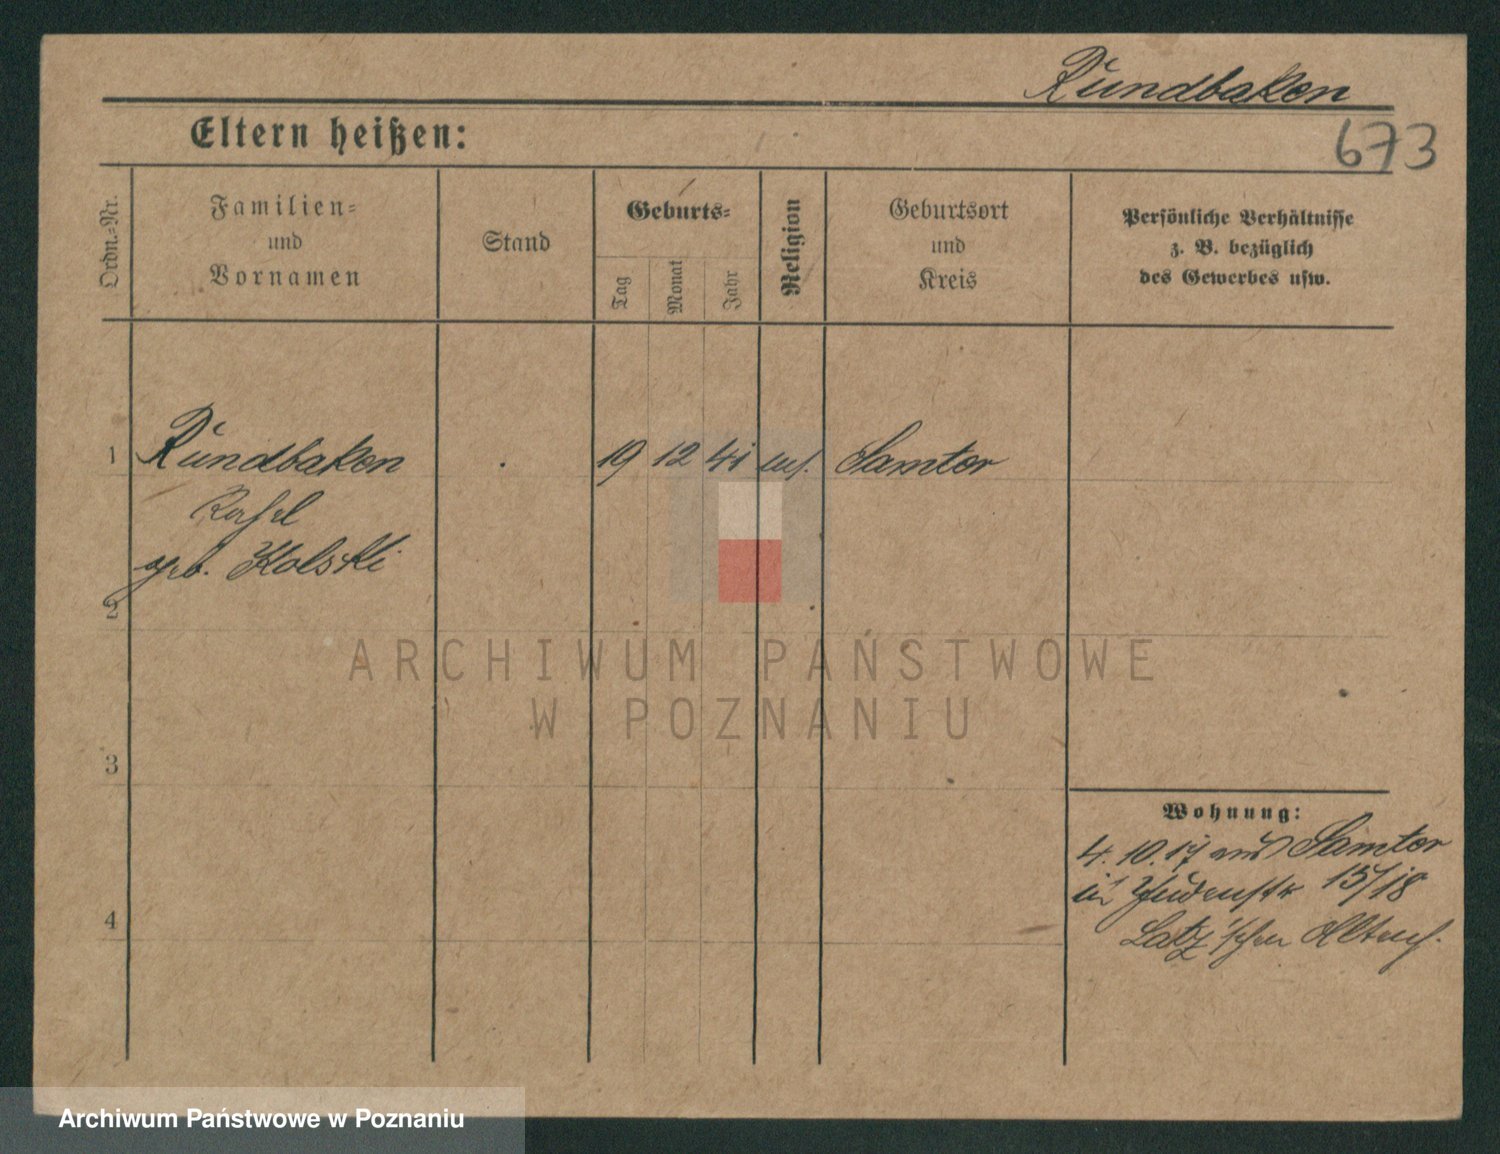 Rundbaken
673
Eltern heißen:
Ordn.=Nr.
Familien=
und
Vornamen
Stand
Geburts=
Tag
Monat
Jahr
Religion
Geburtsort
und
Kreis
Persönliche Verhältnisse
z. B. bezüglich
des Gewerbes usw.
1 Rundbaken 19 12 41 Samter
geb. Kolski
2
3
4
Wohnung:
4. 10. 17 aus Samter
in Judenstr 15/18
Latz'schen
ARCHIWUM PAŃSTWOWE
W POZNANIU
Archiwum Państwowe w Poznaniu